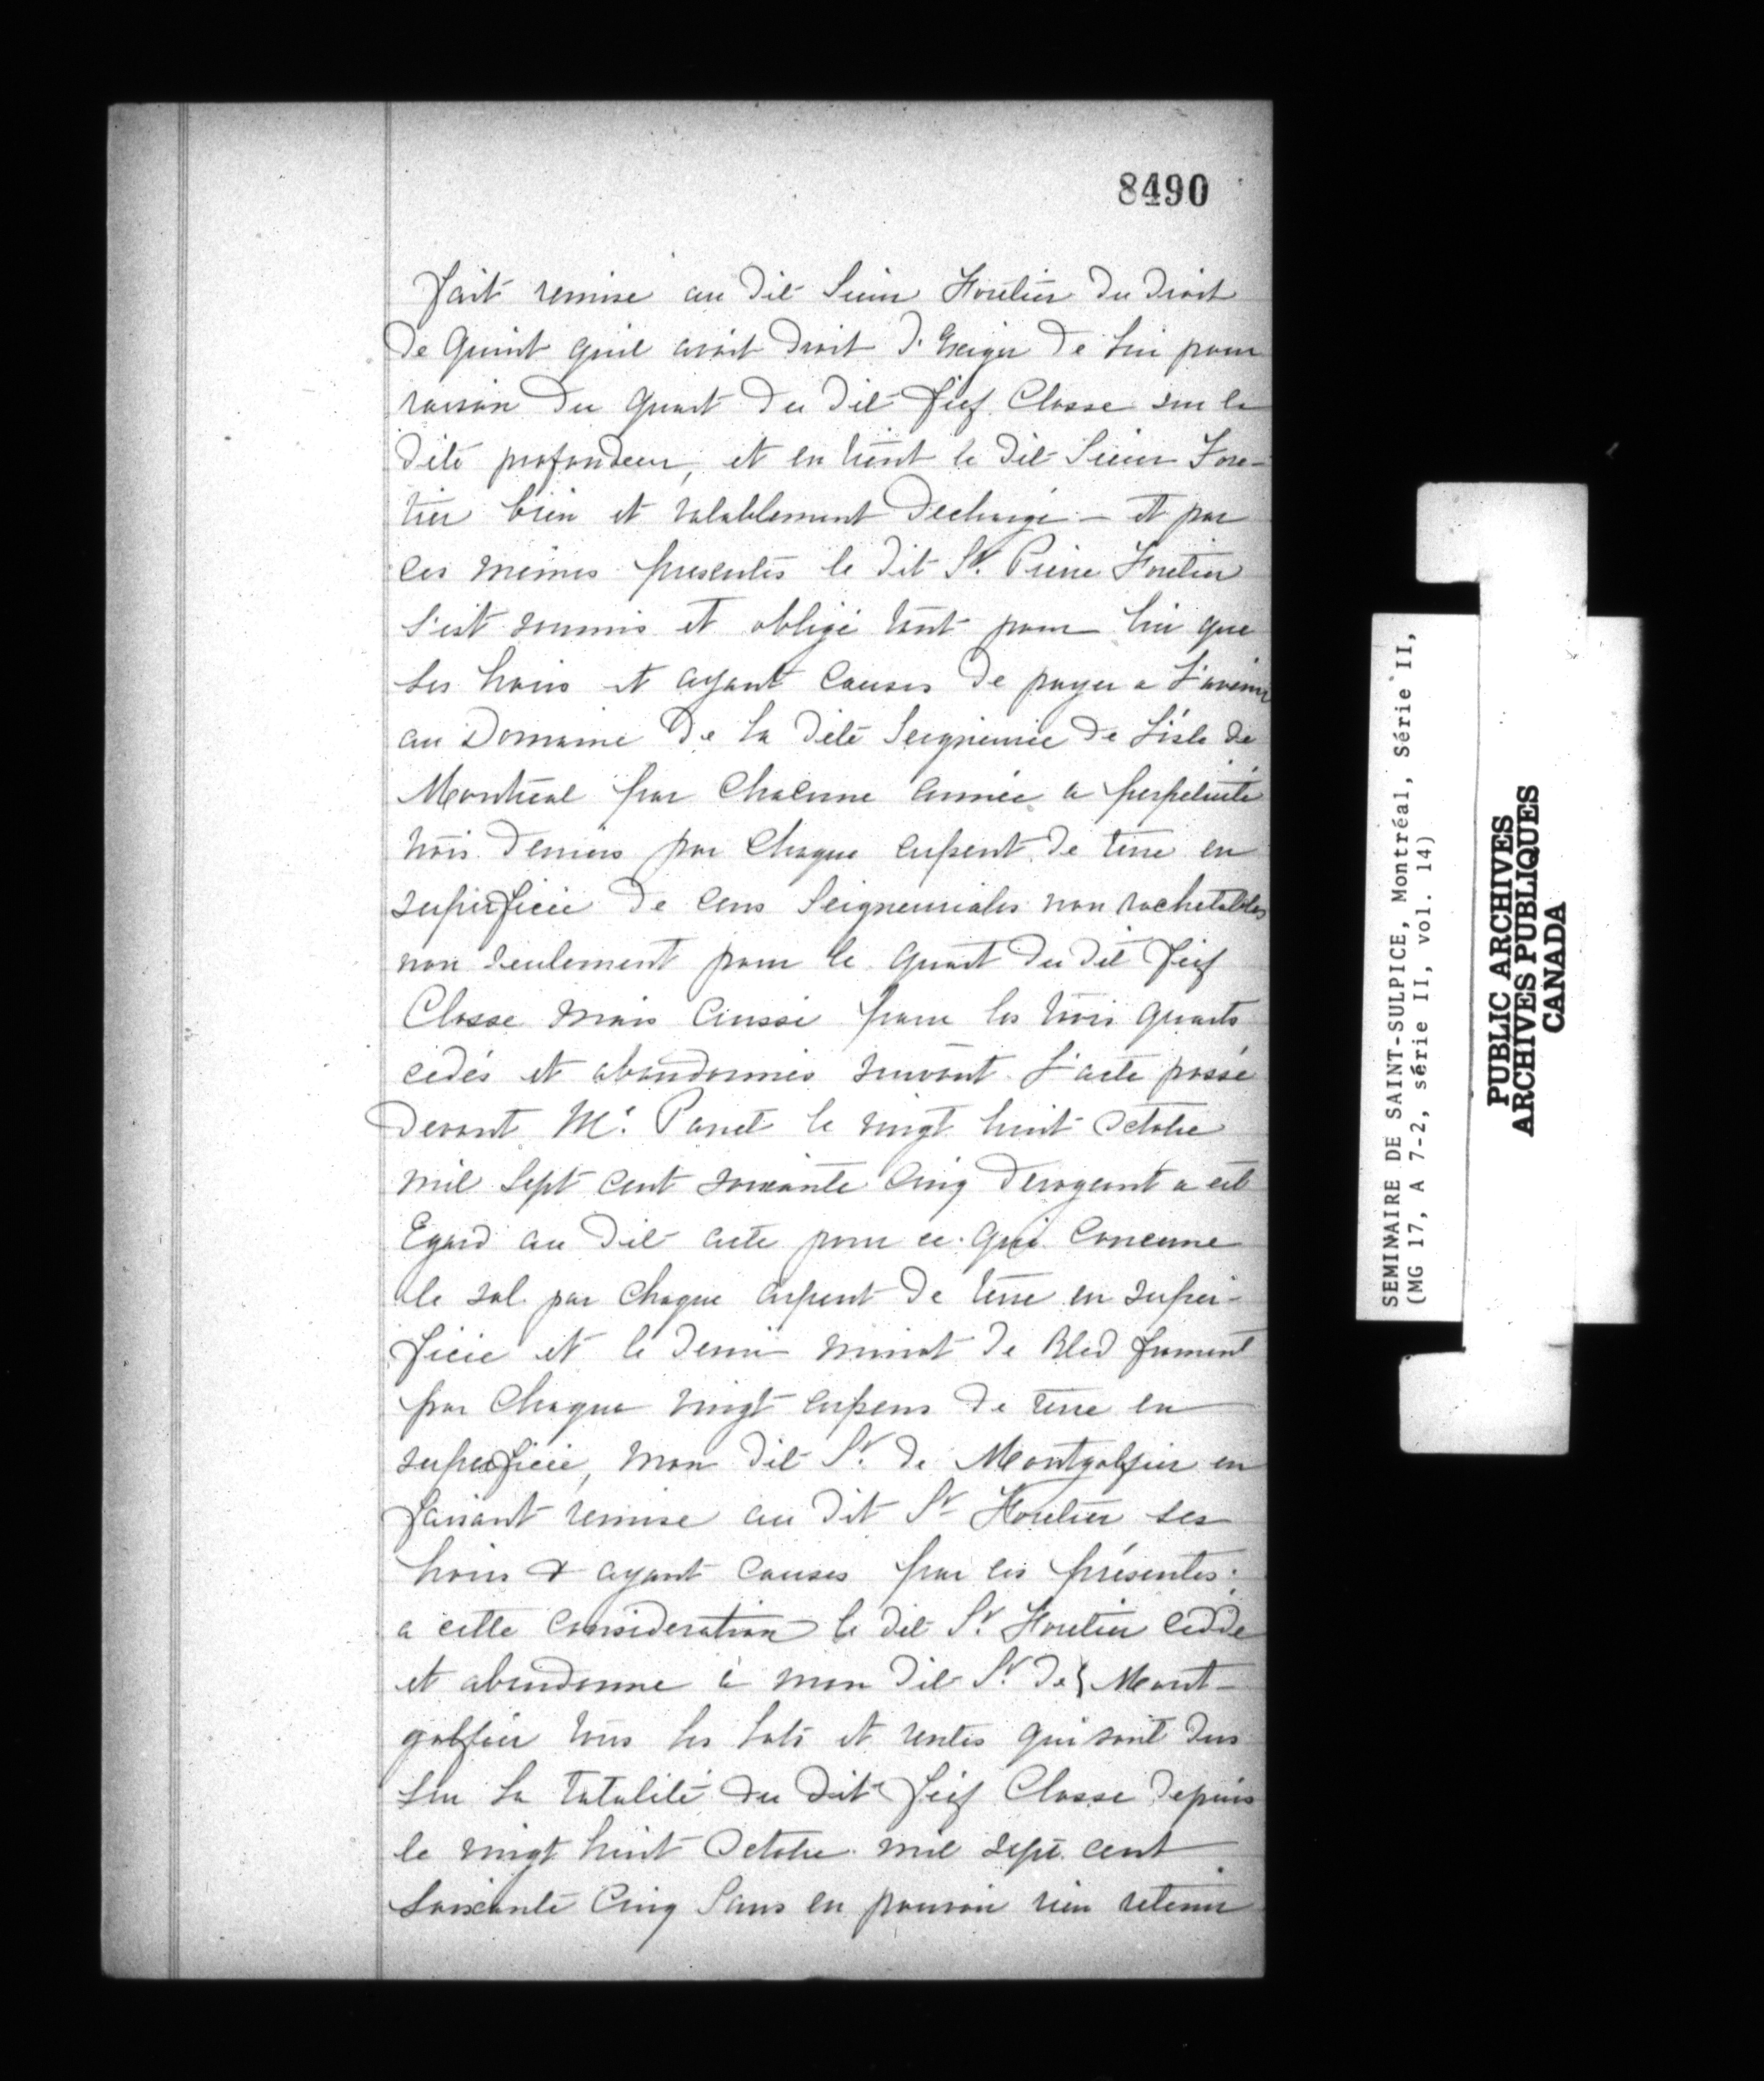 8490
fait remise au dit Sieur Foretier du droit
de Quint quil avoit droit d'Exiger de lui pour
raison du quart du dit fief Closse sur la
dite profondeur, et en tient le dit Sieur Fore-
tier bien et valablement dechargé – et par
ces mêmes presentes le dit Sr. Pierre Foretier
s'est soumis et obligé tant pour lui que
ses hoirs et ayant causes de payer a l'avenir
au Domaine de la dite Seigneurie de l'isle de
Montréal par chacune année a perpetuité
trois deniers par chaque arpent de terre en
superficie de cens Seigneuriales non rachetables
non seulement pour le quart du dit fief
Closse mais aussi pour les trois quarts
cédés et abandonnés suivant l'acte passé
devant Me. Panet le vingt huit Octobre
mil sept cent soixante cinq derogeant a cet
Egard au dit acte pour ce qui concerne
le sol par chaque arpent de terre en super-
ficie et le demi minot de Bled froment
par chaque vingt arpens de terre en
superficie, mon dit Sr. de Montgolfier en
faisant remise au dit Sr Foretier ses
hoirs & ayant causes par les présentes.
a cette consideration le dit Sr. Foretier cedde
et abandonne à mon dit Sr. de Mont-
golfier tous les lots et rentes qui sont dus
sur la totalité du dit fief Closse depuis
le vingt huit Octobre mil sept cent
soixante cinq sans en pouvoir rien retenir
SEMINAIRE DE SAINT-SULPICE, Montréal, Série II,
(MG 17, A 7-2, série II, vol. 14)
PUBLIC ARCHIVES
ARCHIVES PUBLIQUES
CANADA